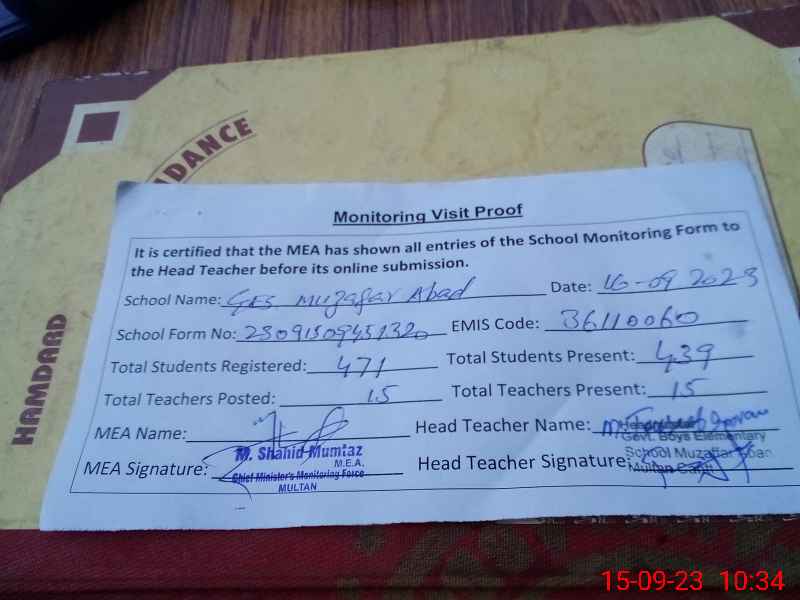 DANCE
HAMDARD
Monitoring Visit Proof
It is certified that the MEA has shown all entries of the School Monitoring Form to
the Head Teacher before its online submission.
School Name: GES Muzafar Abad Date: 16-09 2023
School Form No: 2309150945132 EMIS Code: 36110060
Total Students Registered: 471 Total Students Present: 439
Total Teachers Posted: 15 Total Teachers Present: 15
MEA Name: Head Teacher Name:
MEA Signature: Head Teacher Signature:
M. Shahid Mumtaz
M.E.A.
Chief Minister's Monitoring Force
MULTAN
Govt. Boys Elementary
School Muzaffar
Multan
15-09-23 10:34